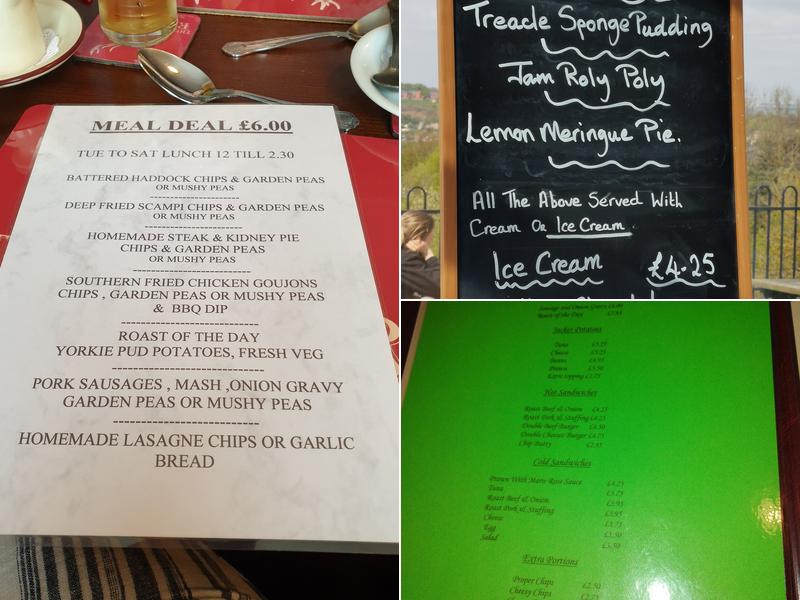 MEAL DEAL £6.00
TUE TO SAT LUNCH 12 TILL 2.30
BATTERED HADDOCK CHIPS & GARDEN PEAS
OR MUSHY PEAS
-----------------------
DEEP FRIED SCAMPI CHIPS & GARDEN PEAS
OR MUSHY PEAS
-----------------------
HOMEMADE STEAK & KIDNEY PIE
CHIPS & GARDEN PEAS
OR MUSHY PEAS
-----------------------
SOUTHERN FRIED CHICKEN GOUJONS
CHIPS , GARDEN PEAS OR MUSHY PEAS
& BBQ DIP
-----------------------
ROAST OF THE DAY
YORKIE PUD POTATOES, FRESH VEG
-----------------------
PORK SAUSAGES , MASH ,ONION GRAVY
GARDEN PEAS OR MUSHY PEAS
-----------------------
HOMEMADE LASAGNE CHIPS OR GARLIC
BREAD
Treacle Sponge Pudding
Jam Roly Poly
Lemon Meringue Pie.
All The Above Served With
Cream Or Ice Cream.
Ice Cream £4.25
Sausage and Onion Gravy
Roast of the Day
Jacket Potatoes
Tuna £5.25
Cheese £5.25
Beans £4.95
Prawn £5.50
Extra topping
Hot Sandwiches
Roast Beef & Onion £4.25
Roast Pork & Stuffing £4.25
Double Beef Burger £4.50
Double Cheese Burger £4.75
Chip Butty £2.95
Cold Sandwiches
Prawn With Marie Rose Sauce £4.25
Tuna £3.75
Roast Beef & Onion £3.95
Roast Pork & Stuffing £3.95
Cheese £3.75
Egg £3.50
Salad £3.50
Extra Portions
Proper Chips £2.50
Cheesy Chips £2.75